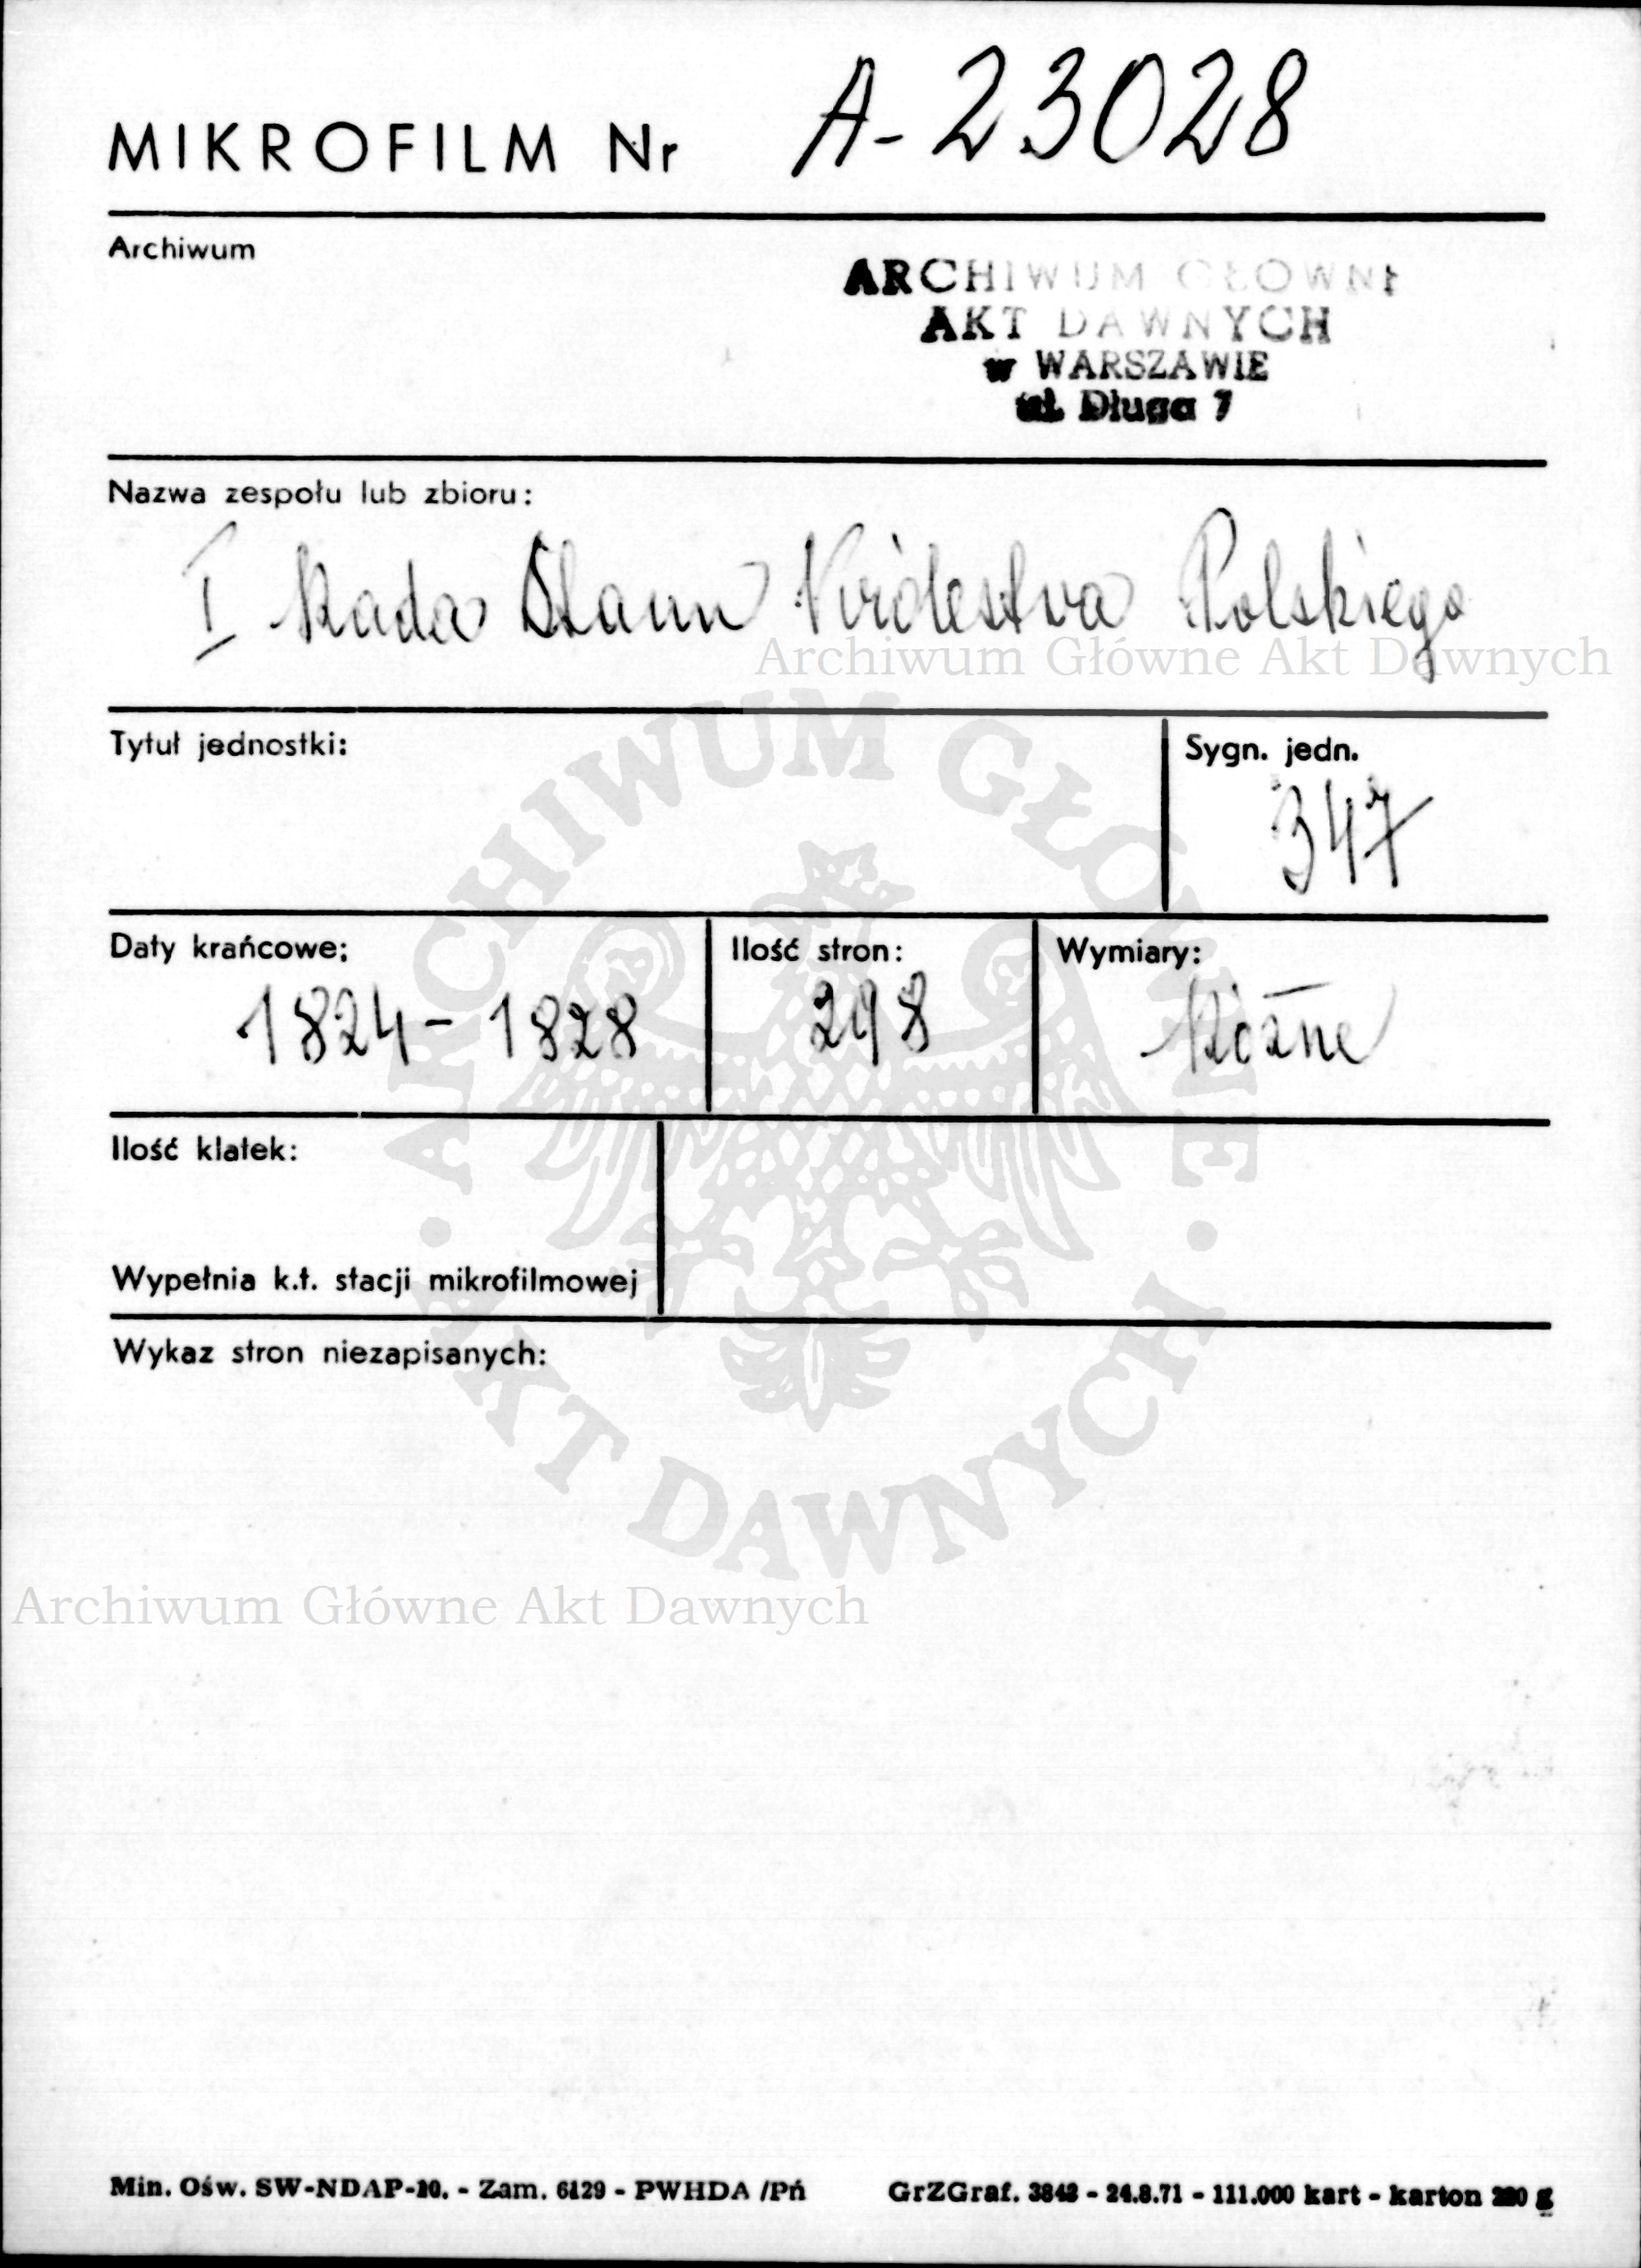 MIKROFILM Nr A-23028
Archiwum
ARCHIWUM GŁÓWNE
AKT DAWNYCH
w WARSZAWIE
ul. Długa 7
Nazwa zespołu lub zbioru:
I Rada Stanu Królestwa Polskiego
Archiwum Główne Akt Dawnych
Tytuł jednostki:
Sygn. jedn.
347
Daty krańcowe:
1824-1828
Ilość stron:
298
Wymiary:
Różne
Ilość klatek:
Wypełnia k.t. stacji mikrofilmowej
Wykaz stron niezapisanych:
ARCHIWUM GŁÓWNE
· AKT DAWNYCH ·
Archiwum Główne Akt Dawnych
Min. Ośw. SW-NDAP-10. - Zam. 6129 - PWHDA /Pń GrZGraf. 3843 - 24.8.71 - 111.000 kart - karton g